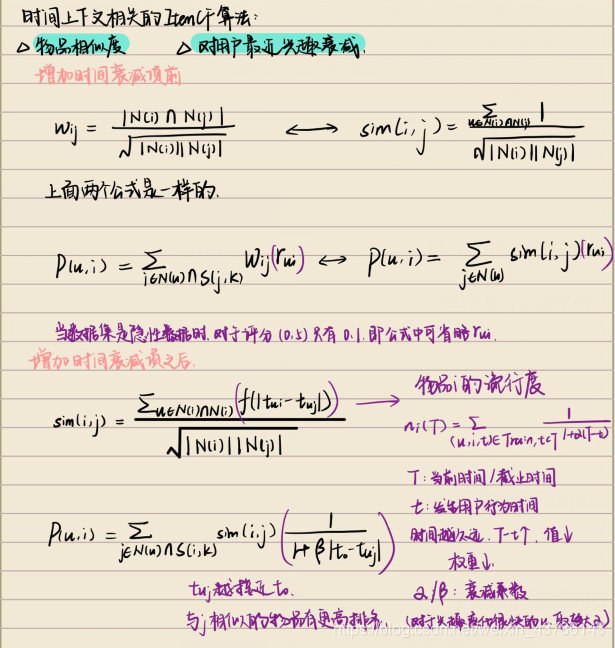 时间上下文相关的ItemCF算法:
△ 物品相似度 △ 对用户最近兴趣衰减.
增加时间衰减项前
Wij = |N(i) ∩ N(j)| / √|N(i)||N(j)| ⟷ sim(i,j) = Σu∈N(i)∩N(j) 1 / √|N(i)||N(j)|
上面两个公式是一样的.
P(u,i) = Σ i∈N(u)∩S(j,k) Wij(rui) ⟷ P(u,i) = Σ j∈N(u) sim(i,j)(rui)
当数据集是隐性数据时.对于评分(0,5)只有0.1.即公式中可省略rui.
增加时间衰减项之后.
sim(i,j) = Σu∈N(i)∩N(j) (f(|tui-tuj|)) / √|N(i)||N(j)| →
物品i的流行度
ni(T) = Σ (u,i,t)∈Train,t<T 1 / 1+α(T-t)
T:当前时间/截止时间
t:发生用户行为时间
时间越久远.T-t↑,值↓
权重↓.
α/β:衰减系数
P(u,i) = Σ j∈N(u)∩S(i,k) sim(i,j) (1 / 1+β|t₀-tuj|)
tuj越接近t₀.
与j相似的物品有更高排名.
https://blog.csdn.net/weixin_43736143